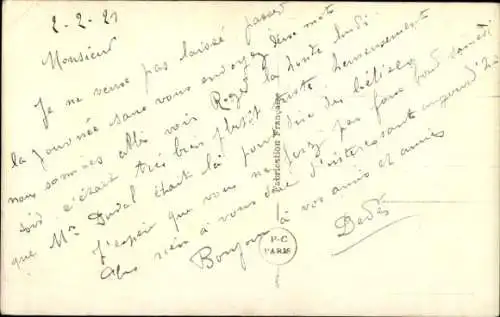 2-2-21
Monsieur
Je ne veux pas laisser passer
la journée sans vous envoyer deux mots
nous sommes allés voir Roger la
soir. c'était très bien plutôt triste heureusement
que Mr Duval était là pour dire des bêtises
J'espère que vous ne ferez pas samedi
rien à vous dire d'intéressant aujourd'hui
Bonjour à vos amis et amies
Dédés
Fabrication Française
P-C
PARIS